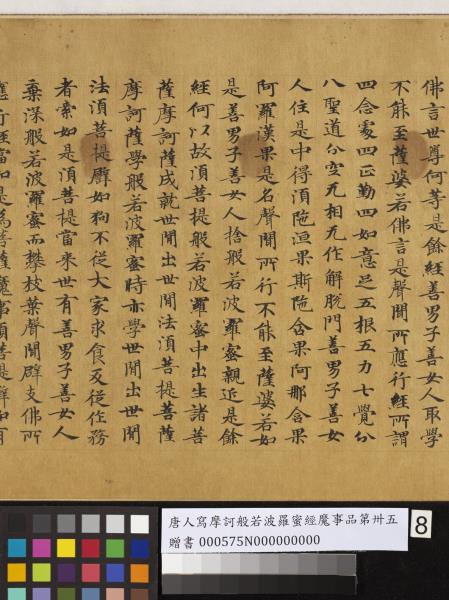 佛言世尊何等是餘經善男子善女人取學
不能至薩婆若佛言是聲聞所應行經所謂
四念處四正勤四如意足五根五力七覺分
八聖道分空无相无作解脫門善男子善女
人住是中得須陁洹果斯陁含果阿那含果
阿羅漢果是名聲聞所行不能至薩婆若如
是善男子善女人捨般若波羅蜜親近是餘
經何以故須菩提般若波羅蜜中出生諸菩
薩摩訶薩成就世間出世間法須菩提菩薩
摩訶薩學般若波羅蜜時亦學世間出世間
法須菩提譬如狗不從大家求食反從作務
者索如是須菩提當來世有善男子善女人
棄深般若波羅蜜而攀枝葉聲聞辟支佛所
應行經當知是為菩薩魔事須菩提譬如有
唐人寫摩訶般若波羅蜜經魔事品第卅五
贈書 000575N000000000
8